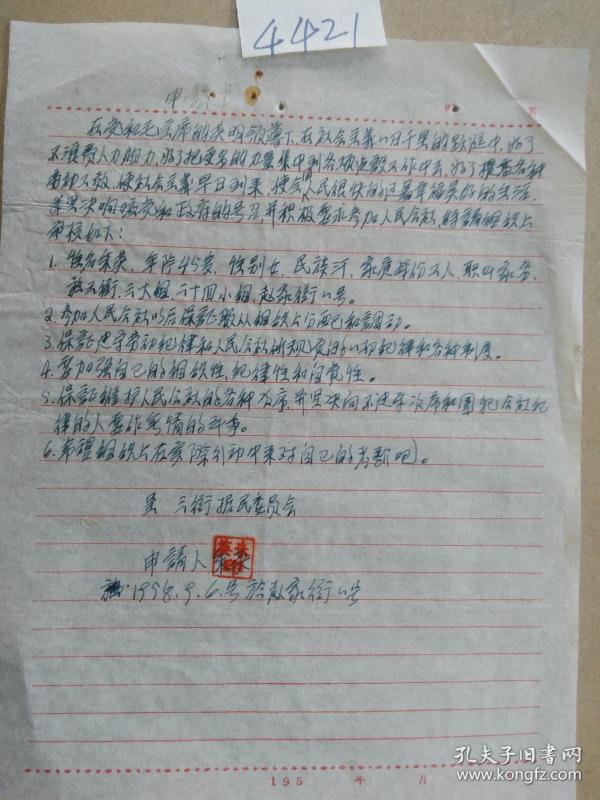 4421
申請书
在党和毛主席的英明領導下,在社会主義一日千里的跃進中,为了
不浪費人力物力,为了把更多的力量集中到各項建設工作中去,为了提高各种
劳动工效,使社会主義早日到來,使全国人民很快的过着幸福美好的生活,
我坚决响应党和政府的号召,并积极要求参加人民公社,特請組织上
審核如下:
1. 姓名朱 年齡45岁,性别女,民族汉,家庭成份工人,职业家务,
三大組,二十四小組,赵家街
2. 参加人民公社以后保証服从組织上分配和調动。
3. 保証遵守劳动纪律和人民公社所规定的一切纪律和各种制度。
4. 要加强自己的組织性纪律性和自觉性。
5. 保証維护人民公社的各种 并坚决向不遵守次序和違犯公社纪
律的人要作無情的斗争。
6. 希望組织上在实际行动中来对自己的考驗吧。
呈 三街居民委員会
申請人 朱
1958.9.6.号於赵家街
195 年 月
孔夫子旧书网
www.kongfz.com